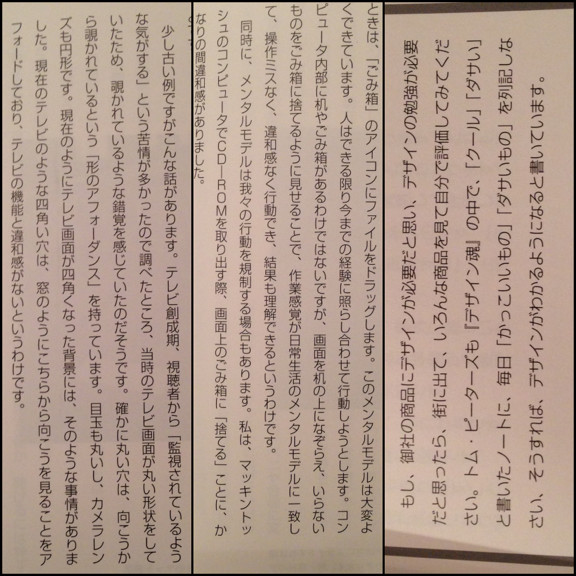 少し古い例ですがこんな話があります。テレビ創成期、視聴者から「監視されているよう
な気がする」という苦情が多かったので調べたところ、当時のテレビ画面が丸い形状をして
いたため、覗かれているような錯覚を感じていたのだそうです。確かに丸い穴は、向こうか
ら覗かれているという「形のアフォーダンス」を持っています。目玉も丸いし、カメラレン
ズも円形です。現在のようにテレビ画面が四角くなった背景には、そのような事情がありま
した。現在のテレビのような四角い穴は、窓のようにこちらから向こうを見ることをア
フォードしており、テレビの機能と違和感がないというわけです。
ときは、「ごみ箱」のアイコンにファイルをドラッグします。このメンタルモデルは大変よ
くできています。人はできる限り今までの経験に照らし合わせて行動しようとします。コン
ピュータ内部に机やごみ箱があるわけではないですが、画面を机の上になぞらえ、いらない
ものをごみ箱に捨てるように見せることで、作業感覚が日常生活のメンタルモデルに一致し
て、操作ミスなく、違和感なく行動でき、結果も理解できるというわけです。
同時に、メンタルモデルは我々の行動を規制する場合もあります。私は、マッキントッ
シュのコンピュータでCD－ROMを取り出す際、画面上のごみ箱に「捨てる」ことに、か
なりの間違和感がありました。
もし、御社の商品にデザインが必要だと思い、デザインの勉強が必要
だと思ったら、街に出て、いろんな商品を見て自分で評価してみてくだ
さい。トム・ピーターズも『デザイン魂』の中で、「クール」「ダサい」
と書いたノートに、毎日「かっこいいもの」「ダサいもの」を列記しな
さい、そうすれば、デザインがわかるようになると書いています。